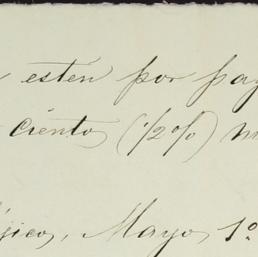 estén por pag
ciento (1/2%) m
jico, Mayo 1º